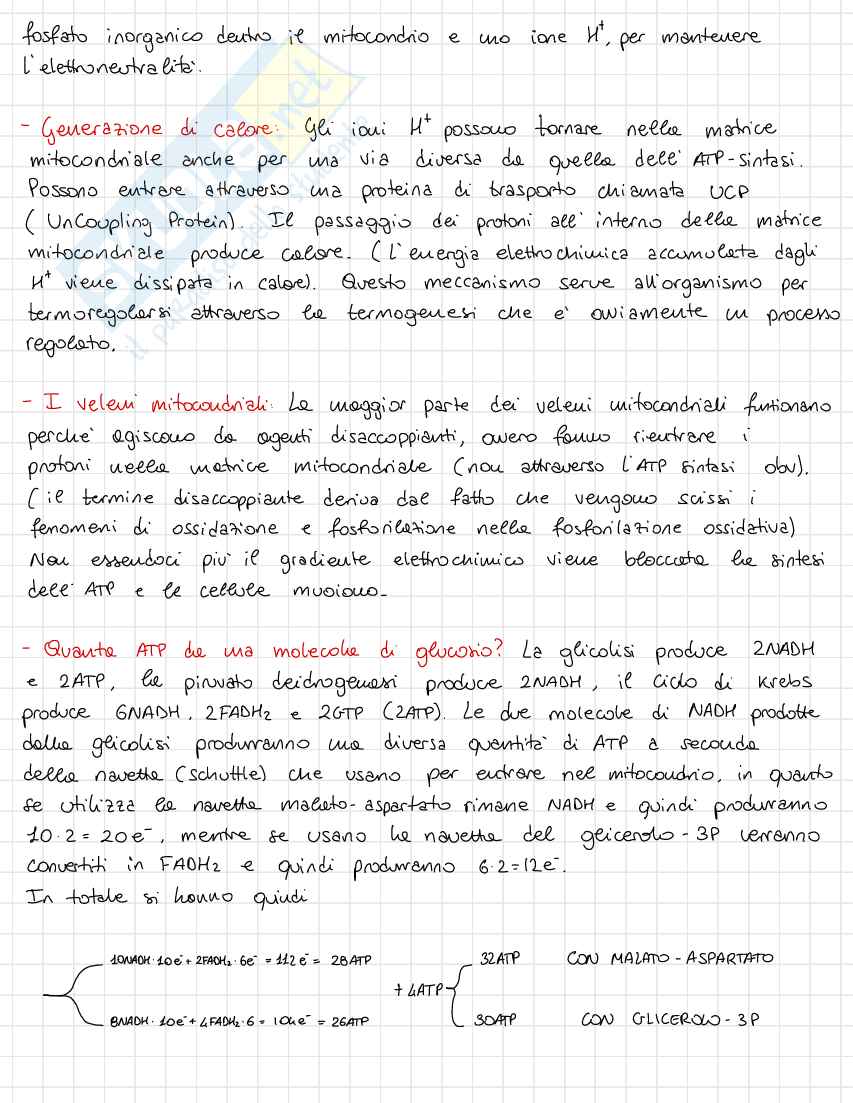 fosfato inorganico dentro il mitocondrio e uno ione H⁺, per mantenere
l'elettroneutralità.
- Generazione di calore: Gli ioni H⁺ possono tornare nella matrice
mitocondriale anche per una via diversa da quella dell'ATP-sintasi.
Possono entrare attraverso una proteina di trasporto chiamata UCP
(UnCoupling Protein). Il passaggio dei protoni all'interno della matrice
mitocondriale produce calore. (L'energia elettrochimica accumulata dagli
H⁺ viene dissipata in calore). Questo meccanismo serve all'organismo per
termoregolarsi attraverso la termogenesi che e' ovviamente un processo
regolato.
- I veleni mitocondriali: La maggior parte dei veleni mitocondriali funzionano
perche' agiscono da agenti disaccoppianti, ovvero fanno rientrare i
protoni nella matrice mitocondriale (non attraverso l'ATP sintasi obv).
(il termine disaccoppiante deriva dal fatto che vengono scissi i
fenomeni di ossidazione e fosforilazione nella fosforilazione ossidativa)
Non essendoci piu' il gradiente elettrochimico viene bloccata la sintesi
dell'ATP e le cellule muoiono.
- Quanta ATP da una molecola di glucosio? La glicolisi produce 2NADH
e 2ATP, la piruvato deidrogenasi produce 2NADH, il ciclo di Krebs
produce 6NADH, 2FADH₂ e 2GTP (2ATP). Le due molecole di NADH prodotte
dalla glicolisi produrranno una diversa quantita' di ATP a seconda
della navetta (schuttle) che usano per entrare nel mitocondrio, in quanto
se utilizza la navetta malato-aspartato rimane NADH e quindi produrranno
10·2=20e⁻, mentre se usano la navetta del glicerolo-3P verranno
convertiti in FADH₂ e quindi produrranno 6·2=12e⁻.
In totale si hanno quindi
10NADH·10e⁻+2FADH₂·6e⁻=112e⁻=28ATP 32ATP CON MALATO-ASPARTATO
+4ATP
8NADH·10e⁻+4FADH₂·6=104e⁻=26ATP 30ATP CON GLICEROLO-3P